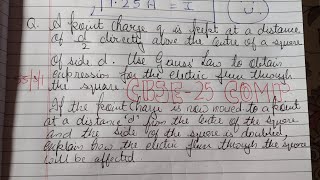 1.25A = I
Q. A point charge q is kept at a distance
of d/2 directly above the centre of a square
of side d. Use Gauss' law to obtain
expression for the electric flux through
the square. CBSE-25 COMP
55/4/1
If the point charge is now moved to a point
at a distance 'd' from the centre of the square
and the side of the square is doubled,
explain how the electric flux through the square
will be affected